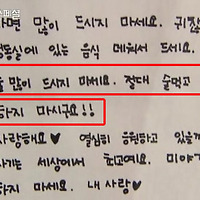 스페셜
라면 많이 드시지 마세요. 귀찮
냉동실에 있는 음식 데워서 드세요.
술 많이 드시지 마세요. 절대 술먹고
하지 마시구요!!
사랑해요♥ 열심히 응원하고 있을
자기는 세상에서 최고예요. 미야
하지 마세요. 내 사랑♥